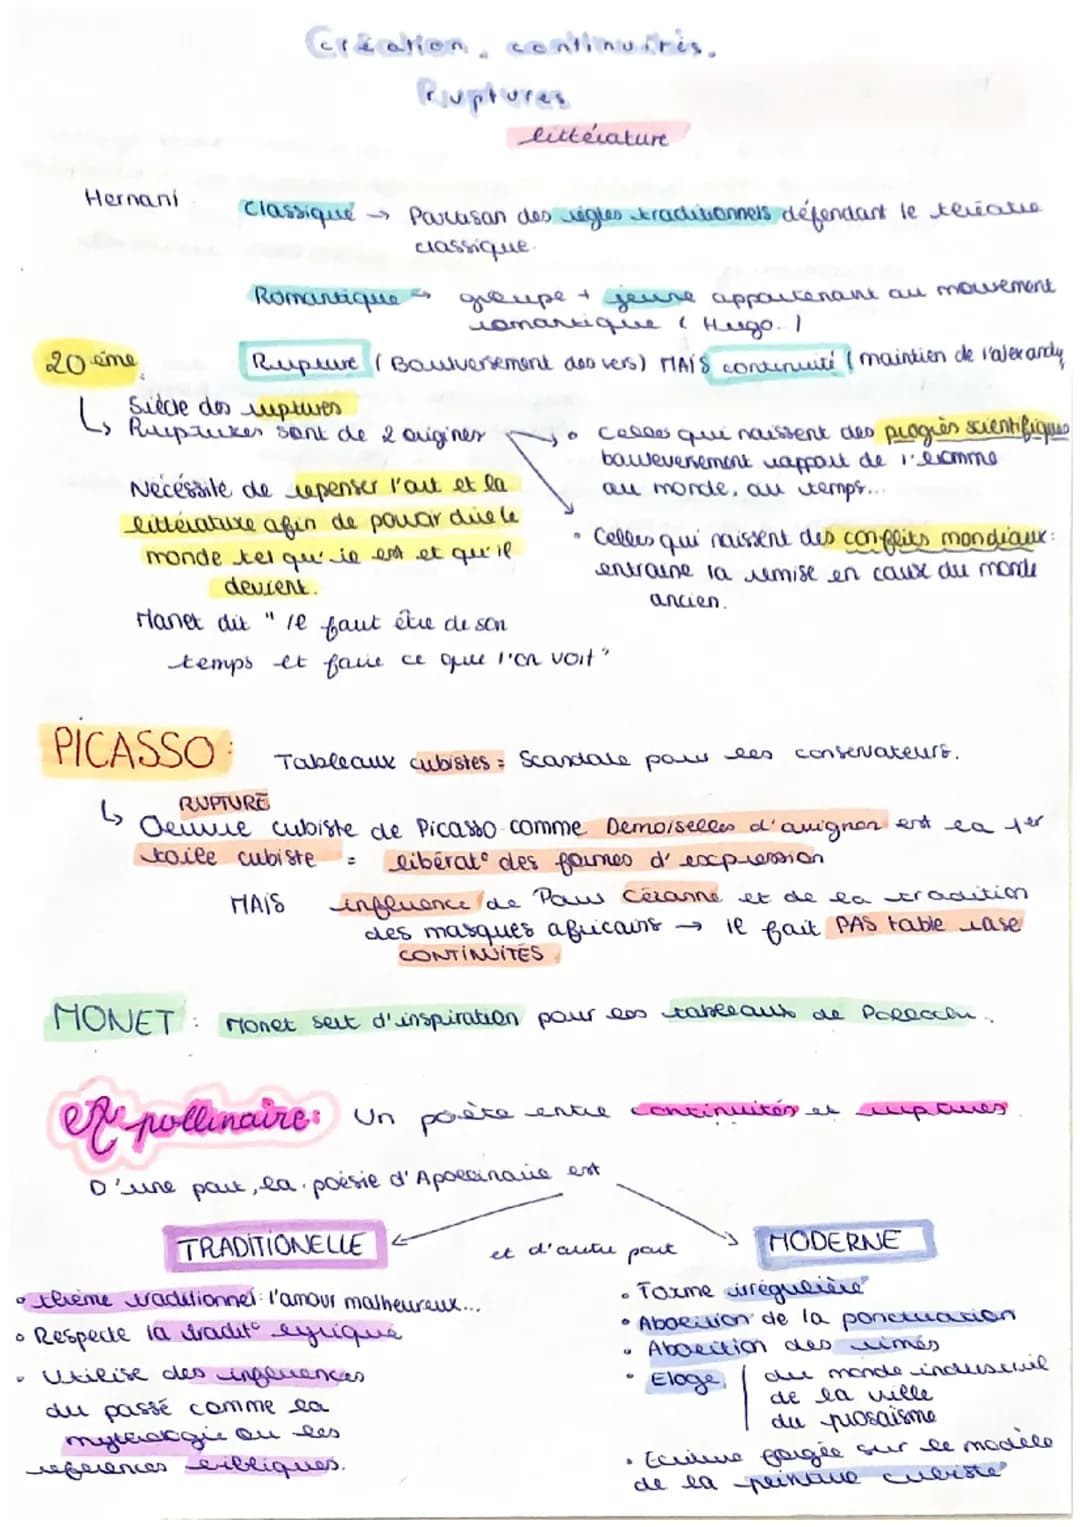 Création, continuités,
Ruptures
littérature
Hernani
Classique → Partisan des règles traditionnels défendant le théâtre
classique.
Romantique → groupe + jeune appartenant au mouvement
romantique ( Hugo..)
20 ème
Rupture (Bouleversement des vers) MAIS continuité (maintien de l'alexandr
↳ Siècle des ruptures
Ruptures sont de 2 origines
• Celles qui naissent des progrès scientifiques
bouleversement rapport de l'homme
au monde, au temps...
Nécéssité de repenser l'art et la
littérature afin de pouvoir dire le
monde tel qu'il est et qu'il
devient.
• Celles qui naissent des conflits mondiaux:
entraine la remise en caux du monde
ancien.
Manet dit "il faut être de son
temps et faire ce que l'on voit"
PICASSO: Tableaux cubistes = Scandale pour les conservateurs.
↳ RUPTURE
Oeuvre cubiste de Picasso comme Demoiselles d'avignon est la 1er
toile cubiste = libérat° des formes d'expression
MAIS influence de Paul Cézanne et de la tradition
des masques africains → il fait PAS table rase
CONTINUITÉS
MONET : Monet sert d'inspiration pour les tableaux de Pollock.
Apollinaire: Un poète entre continuités et ruptures.
D'une part, la poésie d'Apollinaire est
TRADITIONELLE
et d'autre part
MODERNE
• thème traditionnel: l'amour malheureux...
• Respecte la tradit° lyrique
• Utilise des influences
du passé comme la
mythologie ou les
références bibliques.
• Forme irrégulière
• Abolition de la ponctuation
• Abolition des rimes
• Eloge du monde industriel
de la ville
du prosaïsme
• Ecriture forgée sur le modèle
de la peinture cubiste